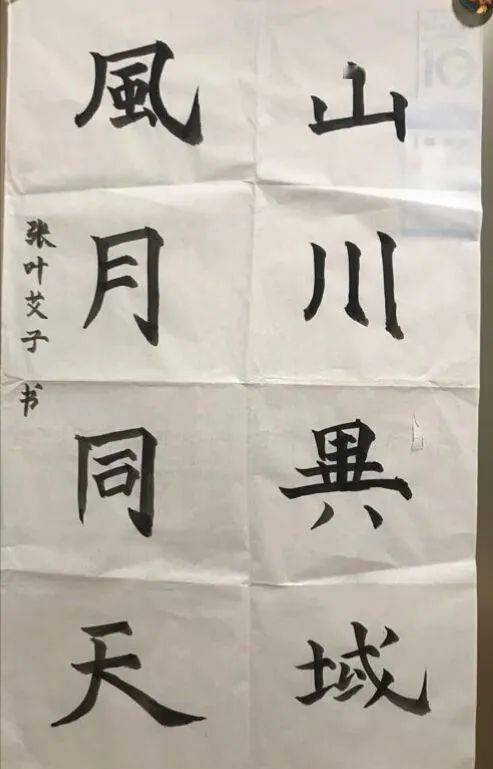 山川異域
風月同天
张叶艾子 书